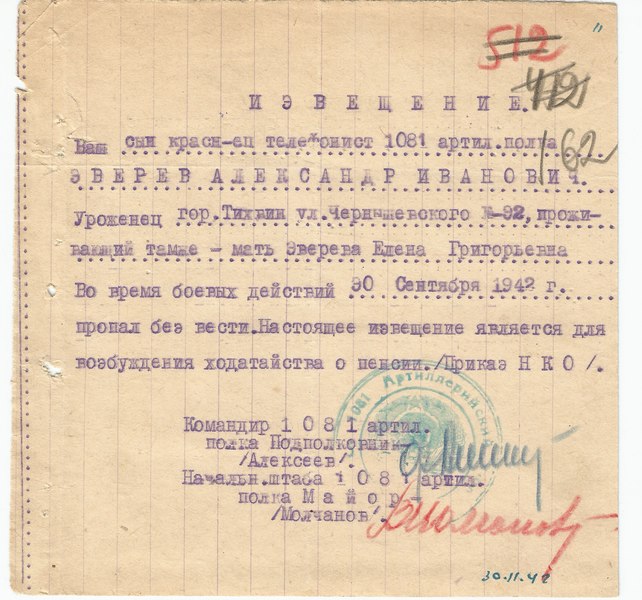 512
412
162
11
ИЗВЕЩЕНИЕ.
Ваш сын красн-ец телефонист 1081 артил.полка
ЗВЕРЕВ АЛЕКСАНДР ИВАНОВИЧ.
Уроженец гор.Тихвин ул.Чернышевского №-92, прожи-
вающий тамже - мать Зверева Елена Григорьевна
Во время боевых действий 30 Сентября 1942 г.
пропал без вести.Настоящее извещение является для
возбуждения ходатайства о пенсии./Приказ Н К О /.
1081 Артиллерийский
Командир 1 0 8 1 артил.
полка Подполковник-
/Алексеев/.
Начальн.штаба 1 0 8 1 артил.
полка М а й о р -
/Молчанов/.
30.11.42